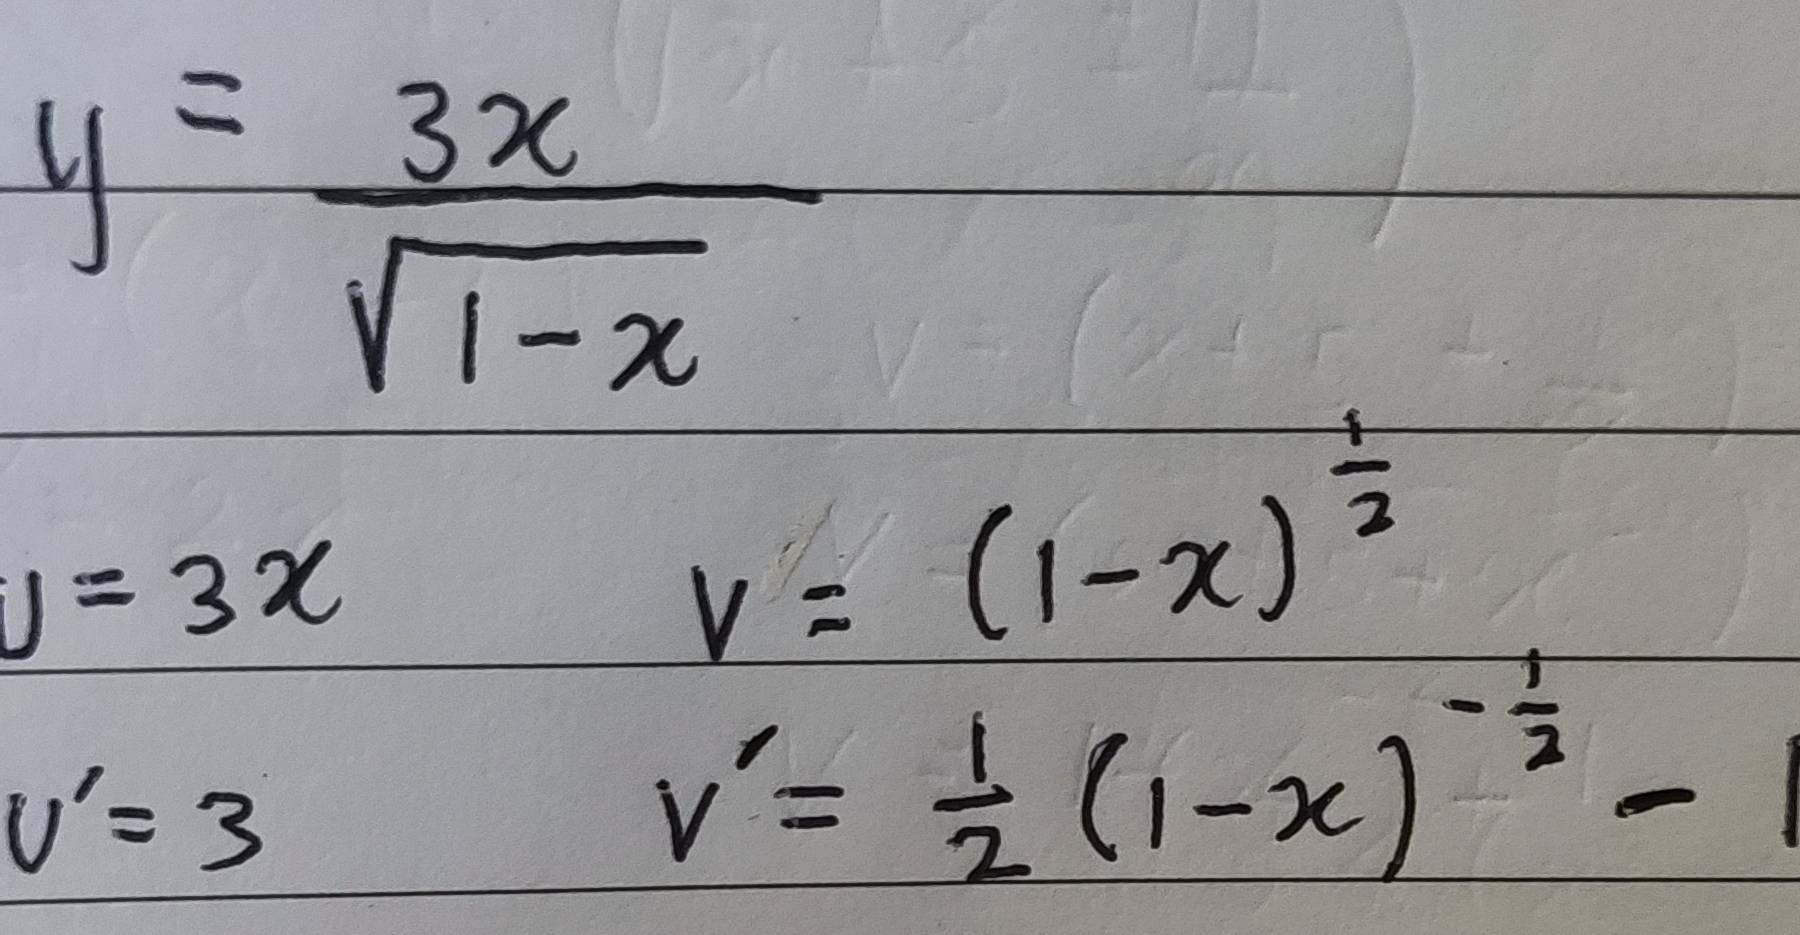 y = 3x / √(1-x)
U = 3x V = (1-x)^(1/2)
U' = 3 V' = 1/2 (1-x)^(-1/2) - 1